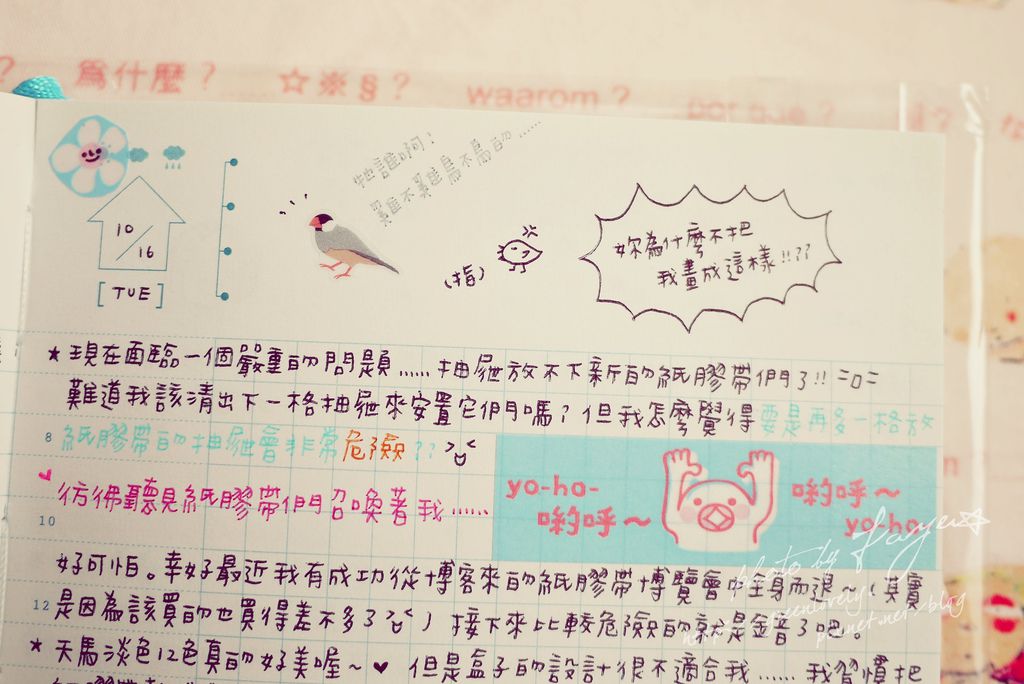 為什麼?
☆※§?
waarom?
por que?
牠誰啊?
異雞不異雞鳥不鳥的......
10/16
[TUE]
(指)
妳為什麼不把
我畫成這樣!!??
★現在面臨一個嚴重的問題......抽屜放不下新的紙膠帶們了!!=口=
難道我該清出下一格抽屜來安置它們嗎?但我怎麼覺得要是再多一格放
8
紙膠帶的抽屜會非常危險??
彷彿聽見紙膠帶們召喚著我......
yo-ho-
喲呼~
喲呼~
yo-ho-
10
好可怕。幸好最近我有成功從博客來的紙膠帶博覽會中全身而退。(其實
12
是因為該買的也買得差不多了)接下來比較危險的就是金普了吧。
★天馬淡色12色真的好美喔~♥但是盒子的設計很不適合我......我習慣把
photo by Faye
pixnet.net/blog